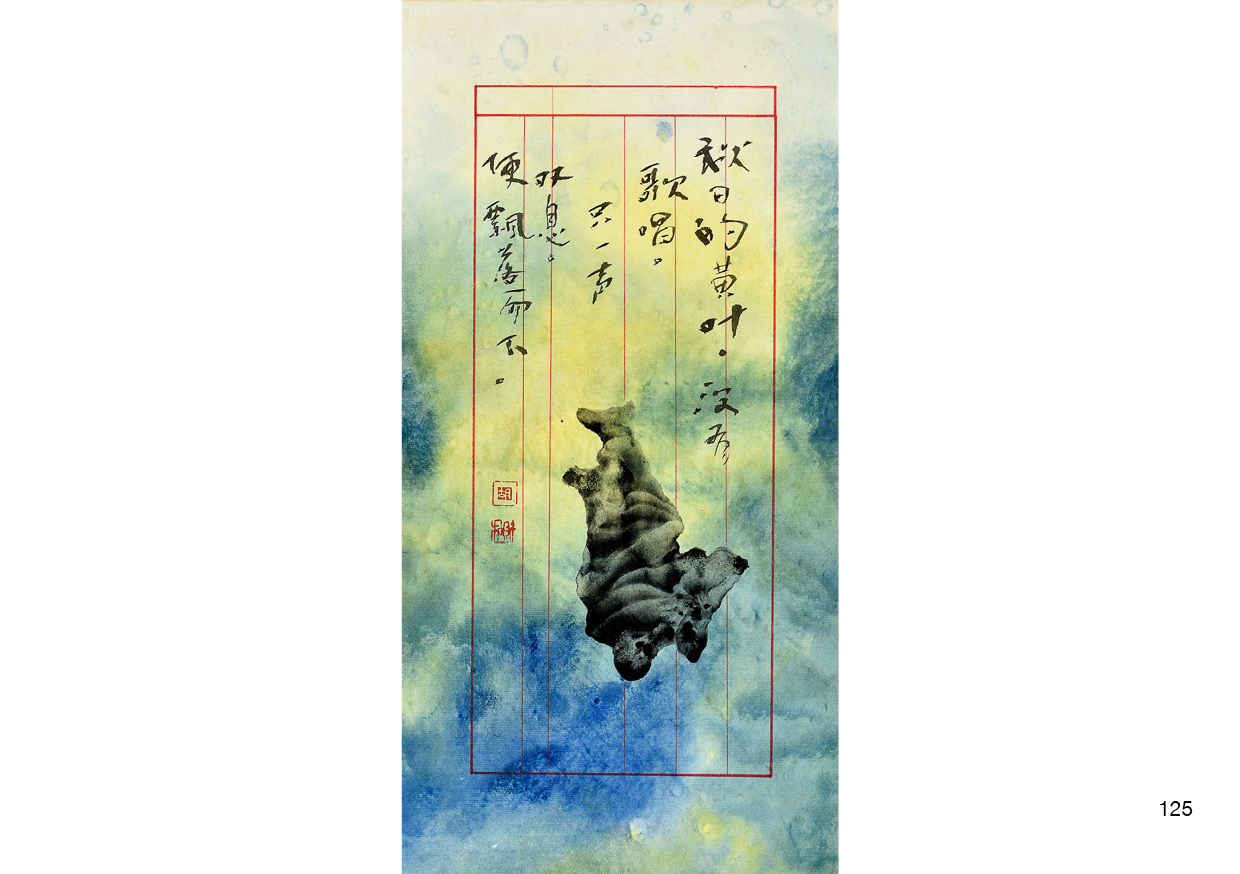 秋日的黄叶。没有
歌唱。
只一声
叹息。
便飘落而下。
胡
125